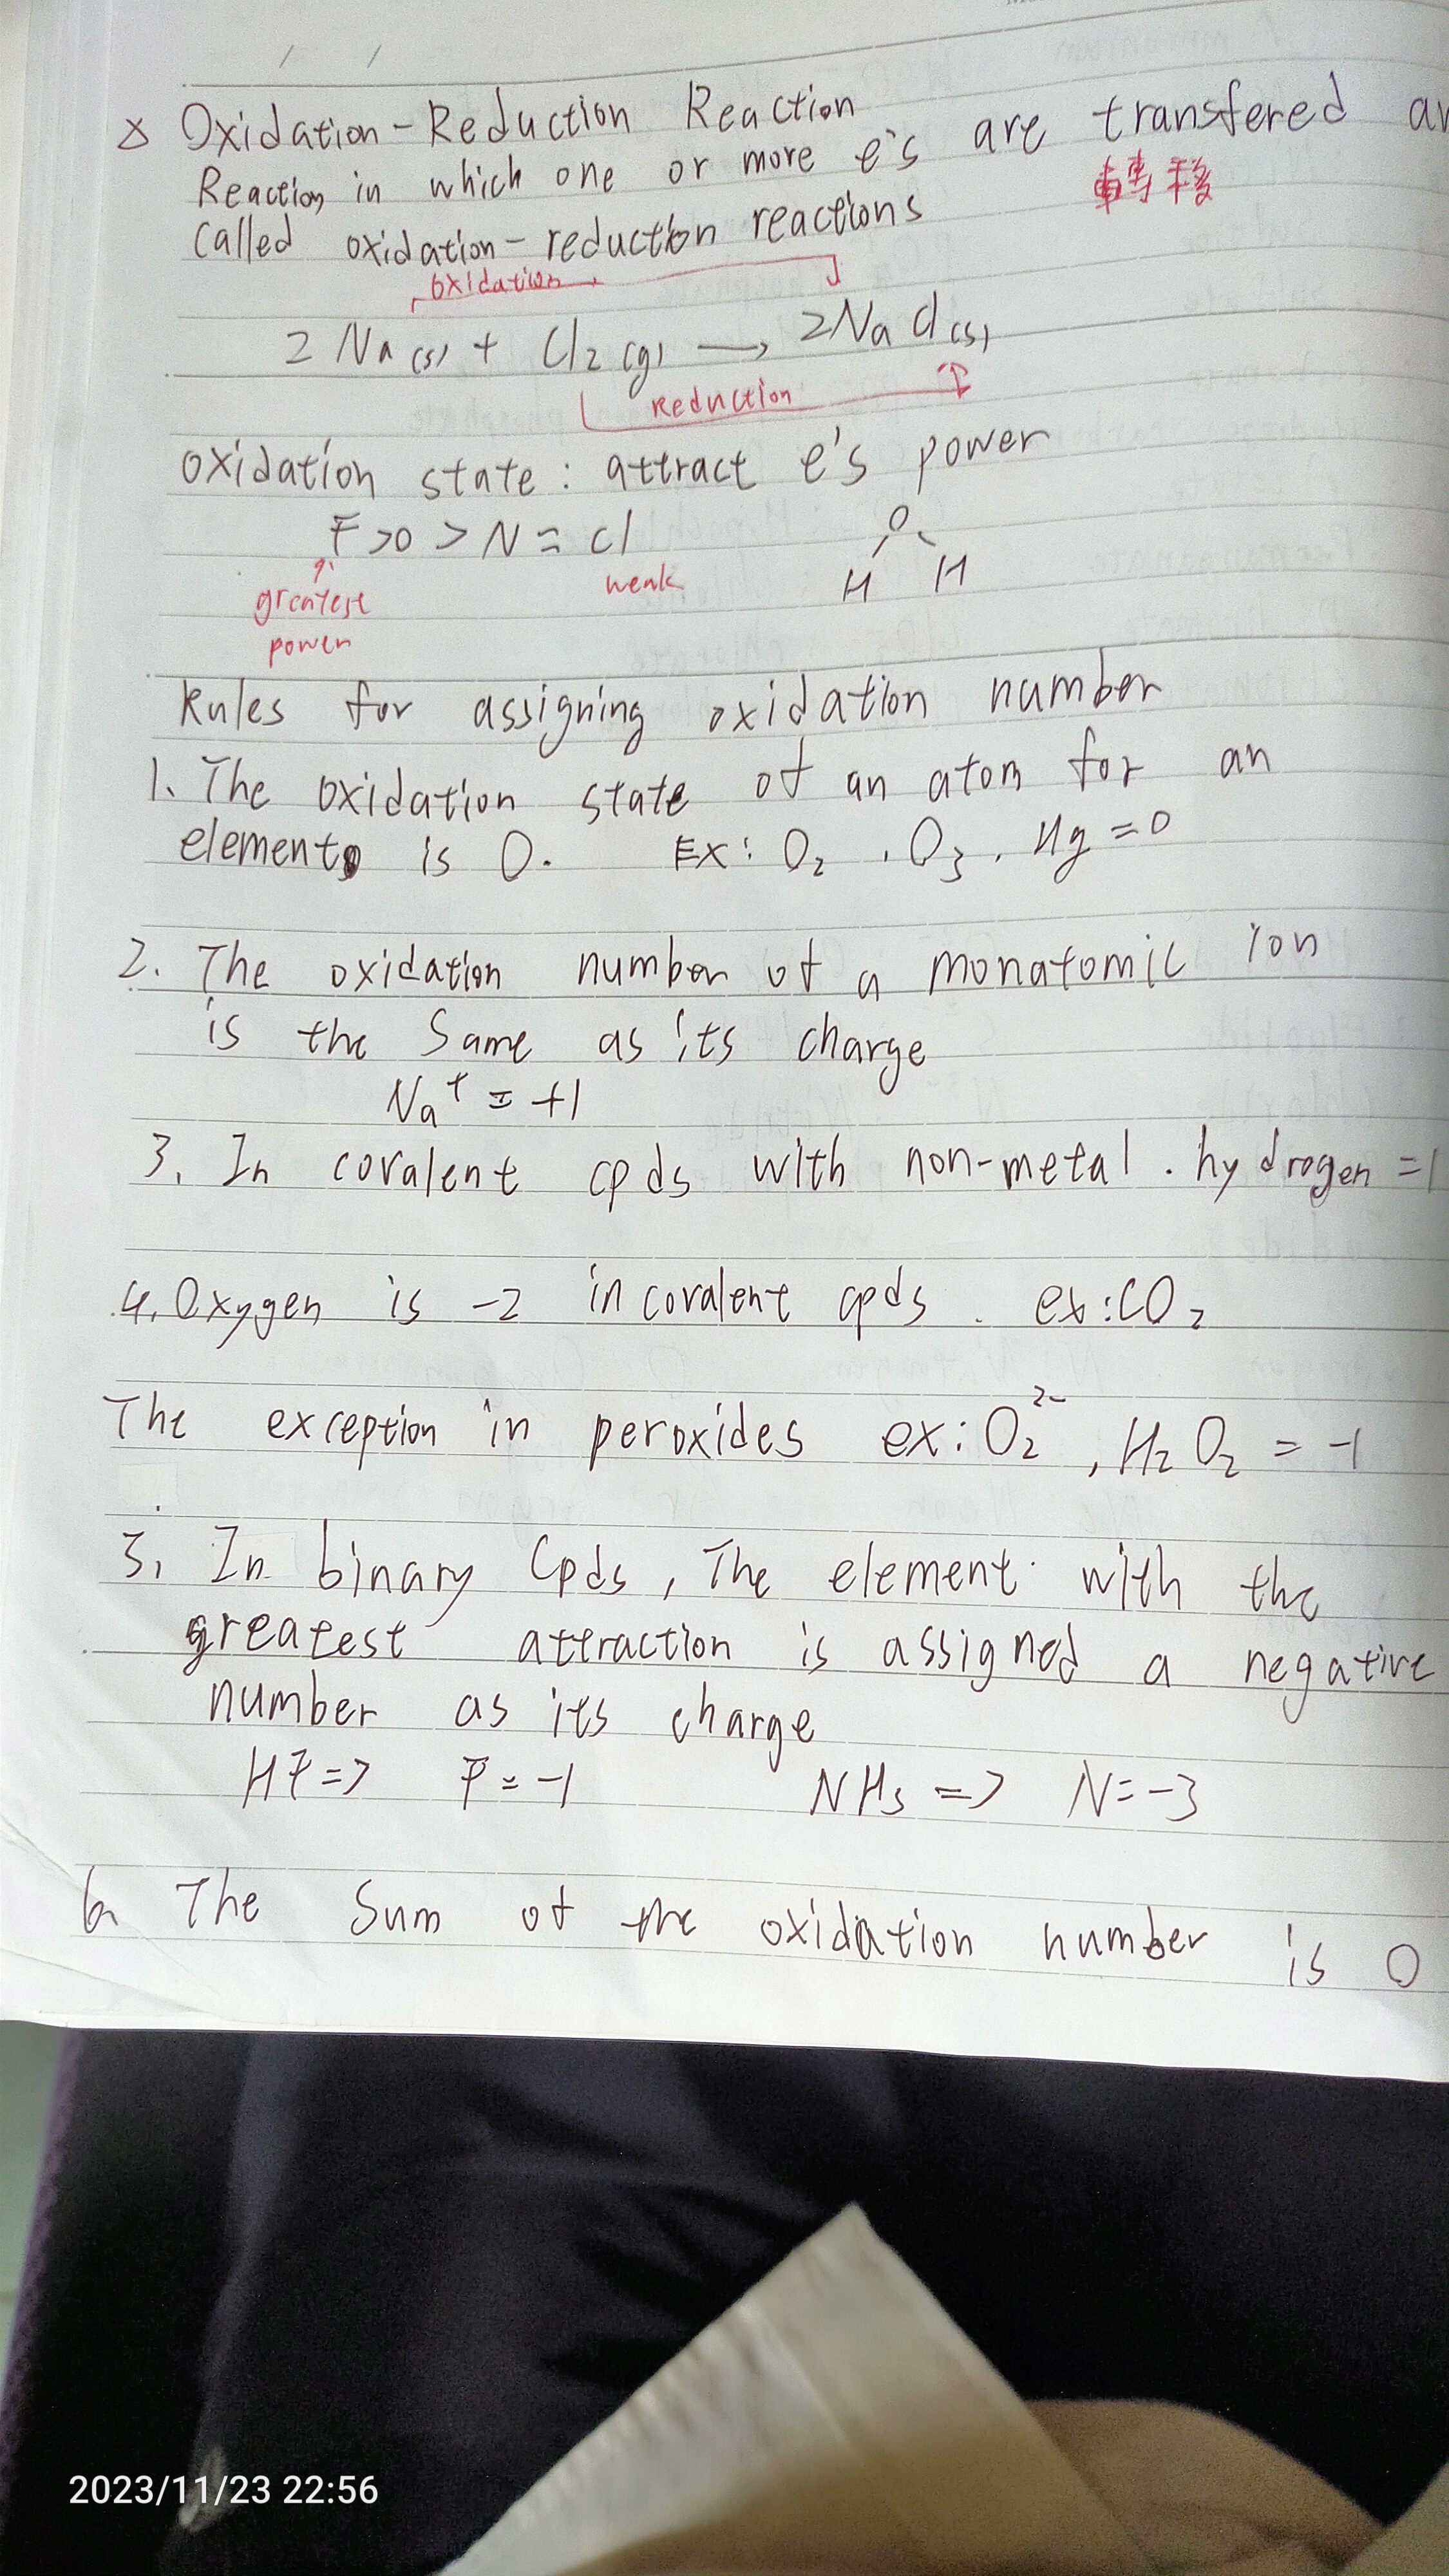 Oxidation-Reduction Reaction
Reaction in which one or more e's are transfered ar
轉移
Called oxidation-reduction reactions
oxidation
2 Na (s) + Cl2 (g) → 2Na Cl (s)
Reduction
oxidation state : attract e's power
F > O > N = Cl
greatest
power
weak
O
H H
Rules for assigning oxidation number
1. The oxidation state of an atom for an
element is 0. Ex: O2 , O3 , Hg = 0
2. The oxidation number of a monatomic ion
is the Same as its charge
Na+ = +1
3. In covalent cpds with non-metal . hydrogen = 1
4. Oxygen is -2 in covalent cpds . ex: CO2
The exception in peroxides ex: O2 2- , H2O2 = -1
5. In binary Cpds , The element with the
greatest attraction is assigned a negative
number as its charge
HF => F = -1 NH3 => N = -3
6. The Sum of the oxidation number is 0
2023/11/23 22:56